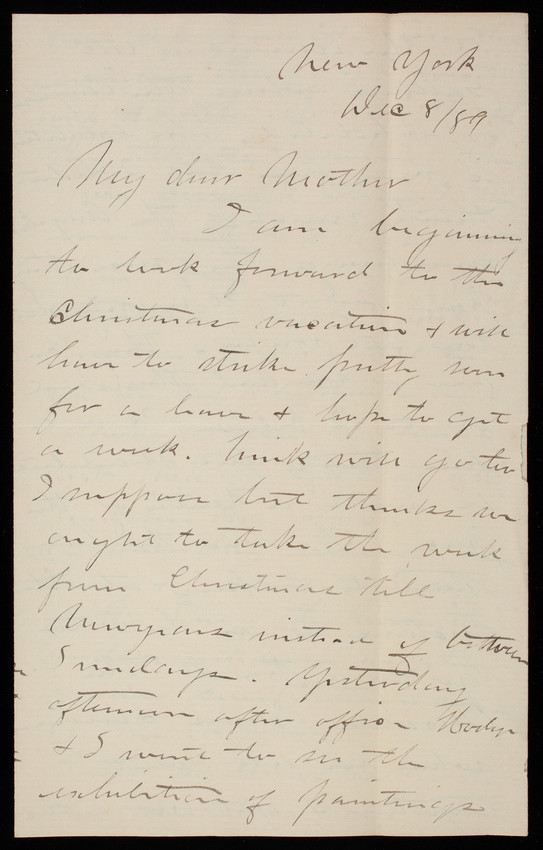 New York
Dec 8/89
My dear Mother
I am beginning
to look forward to the
Christmas vacation & will
have to strike pretty soon
for a leave & hope to get
a week. will go too
I suppose but thinks we
ought to take the week
from Christmas till
Newyears instead of between
Sundays. Yesterday
afternoon after office
& I went to see the
exhibition of paintings